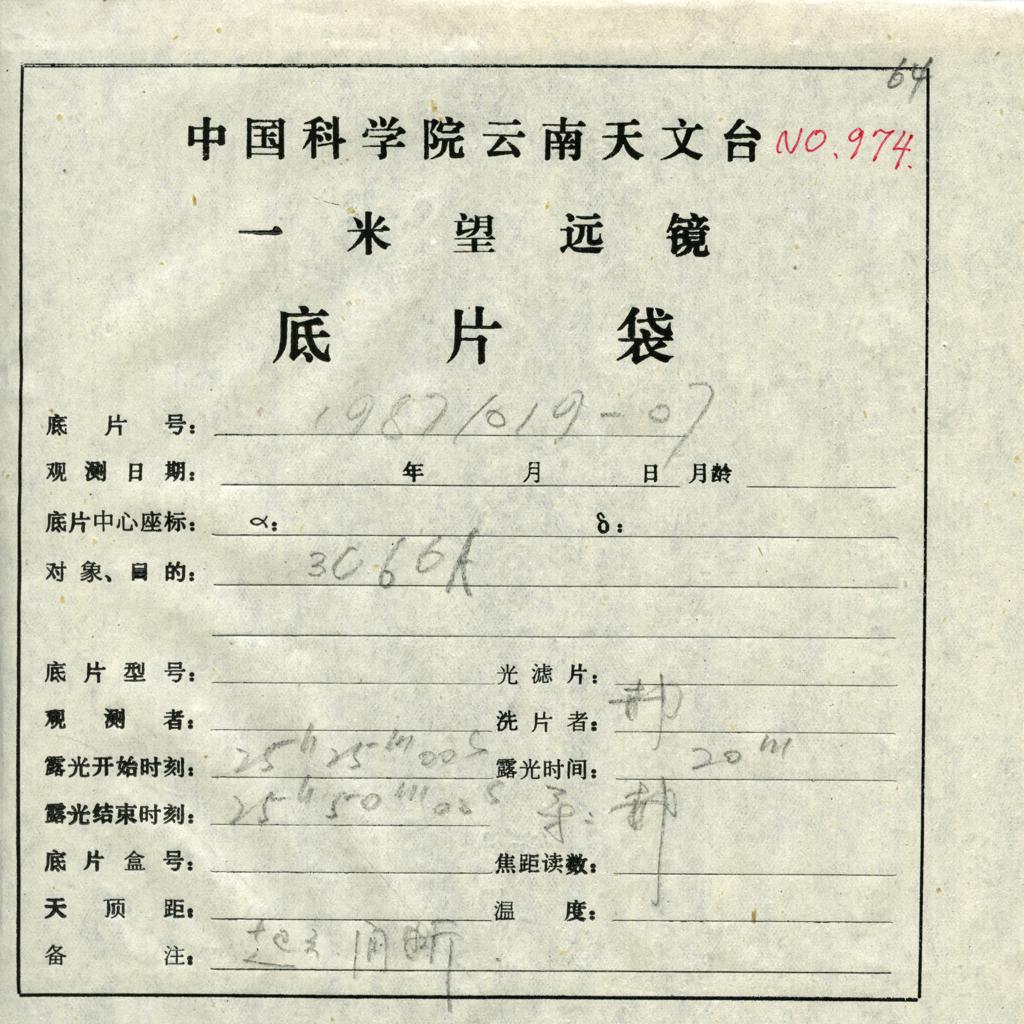 64
中国科学院云南天文台 NO.974.
一米望远镜
底片袋
底片号： 19871019-07
观测日期： 年 月 日 月龄
底片中心座标： α： δ：
对象、目的： 3C66A
底片型号： 光滤片：
观测者： 洗片者： 郝
露光开始时刻： 25h25m00s 露光时间： 20m
露光结束时刻： 25h50m00s 导：郝
底片盒号： 焦距读数：
天顶距： 温度：
备注：